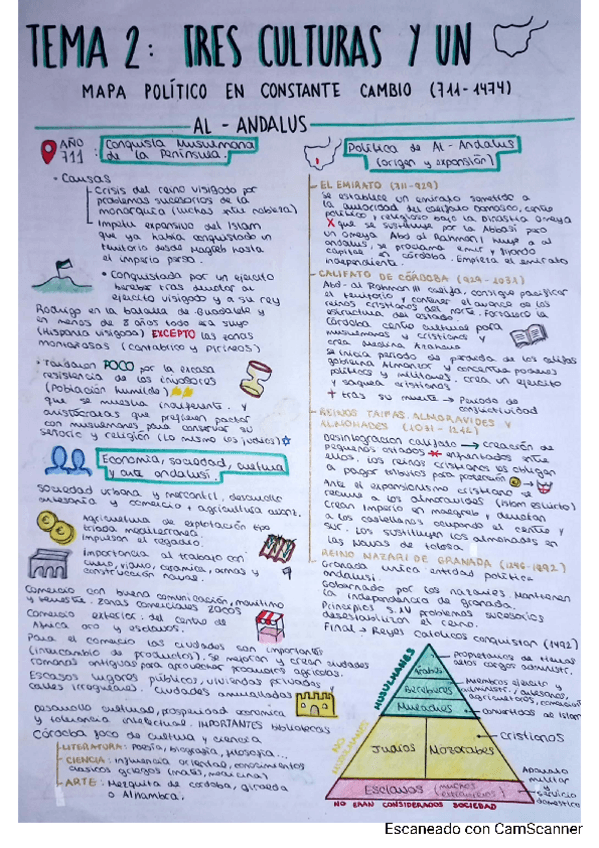 TEMA 2: TRES CULTURAS Y UN
MAPA POLÍTICO EN CONSTANTE CAMBIO (711-1474)
AL-ANDALUS
AÑO 711: Conquista Musulmana
de la Península.
• Causas
Crisis del reino visigodo por
problemas sucesorios de la
monarquía (luchas entre nobleza)
Impetu expansivo del Islam
que ya había conquistado un
territorio desde Magreb hasta
el imperio persa.
• Conquistada por un ejército
bereber tras derrotar al
ejército visigodo y a su rey
Rodrigo en la batalla de Guadalete y
en menos de 8 años todo era suyo
(Hispania visigoda) EXCEPTO las zonas
montañosas (cantábrico y pirineos)
• Tardaron POCO por la escasa
resistencia de los invasores
(Población humilde)
que se muestra indiferente. y
aristócratas que prefieren pactar
con musulmanes para conservar su
señorío y religión (Lo mismo los judíos)
Economía, sociedad, cultura
y arte andalusí.
Sociedad urbana y mercantil, desarrollo
artesanía y comercio + agricultura avanz.
Agricultura de explotación tipo
triada mediterránea
Impulsan el regadío.
Importancia al trabajo con
cuero, vidrio, cerámica, armas y
construcción naval.
Comercio con buena comunicación, marítimo
y terrestre. zonas comerciales ZOCOS
Comercio exterior: del centro de
África oro y esclavos.
Para el comercio las ciudades son importantes
(intercambio de productos). Se mejoran y crean ciudades
romanas antiguas para aprovechar productos agrícolas.
Escasos lugares públicos, viviendas privadas
calles irregulares. Ciudades amuralladas
Desarrollo cultural, prosperidad económica
y tolerancia intelectual. IMPORTANTES bibliotecas
Córdoba foco de cultura y ciencia
LITERATURA: Poesía, biografía, filosofía...
CIENCIA: influencia oriental, conocimientos
clásicos griegos (mates, medicina)
ARTE: Mezquita de córdoba, giralda
o Alhambra.
Política de Al-Andalus
(origen y expansión)
EL EMIRATO (711-929)
Se establece un emirato sometido a
la autoridad del califato Damasco, centro
político y religioso bajo la Dinastía Omeya
X que se sustituye por la Abbasí pero
un Omeya Abd al Rahman I huye a al
andalus, se proclama emir y
capital en córdoba. Empieza el emirato
independiente.
CALIFATO DE CÓRDOBA (929-1031)
Abd-al Rahman III califa, consigue pacificar
el territorio y contener el avance de los
reinos cristianos del norte. Fortalece la
estructura del estado.
Córdoba centro cultural para
musulmanes y cristianos y
crea Medina Azahara
Se inicia periodo de pérdida de los califas
gobierna Almanzor y concentra poderes
políticos y militares. crea un ejército
y saquea cristianos
+ tras su muerte → Periodo de
conflictividad
REINOS TAIFAS, ALMORÁVIDES Y
ALMOHADES (1031-1212)
Desintegración califato → creación de
pequeños estados enfrentados entre
ellos. Los reinos cristianos les obligan
a pagar tributos para protección
Ante el expansionismo cristiano se
recurre a los almorávides (Islam estricto)
Crean Imperio en maegreb y derrotan
a los castellanos ocupando el centro y
sur. Los sustituyen los almohades en
las Navas de tolosa
REINO NAZARÍ DE GRANADA (1246-1492)
Granada única entidad política
andalusí.
Gobernado por los nazaríes. Mantienen
la independencia de granada.
Principios S.XV problemas sucesorios
desestabilizan el reino.
Final → Reyes Católicos conquistan (1492)
MUSULMANES
Árabes
propietarios de tierras
altos cargos administ.
Bereberes
Miembros ejército y
administr., artesanos,
agricultores, comercio
Muladíes
convertidos al Islam
NO MUSULMANES
Judíos
Mozárabes
cristianos
Esclavos (muchos extranjeros)
Aparato
militar
y
servicio
doméstico
NO ERAN CONSIDERADOS SOCIEDAD
Escaneado con CamScanner